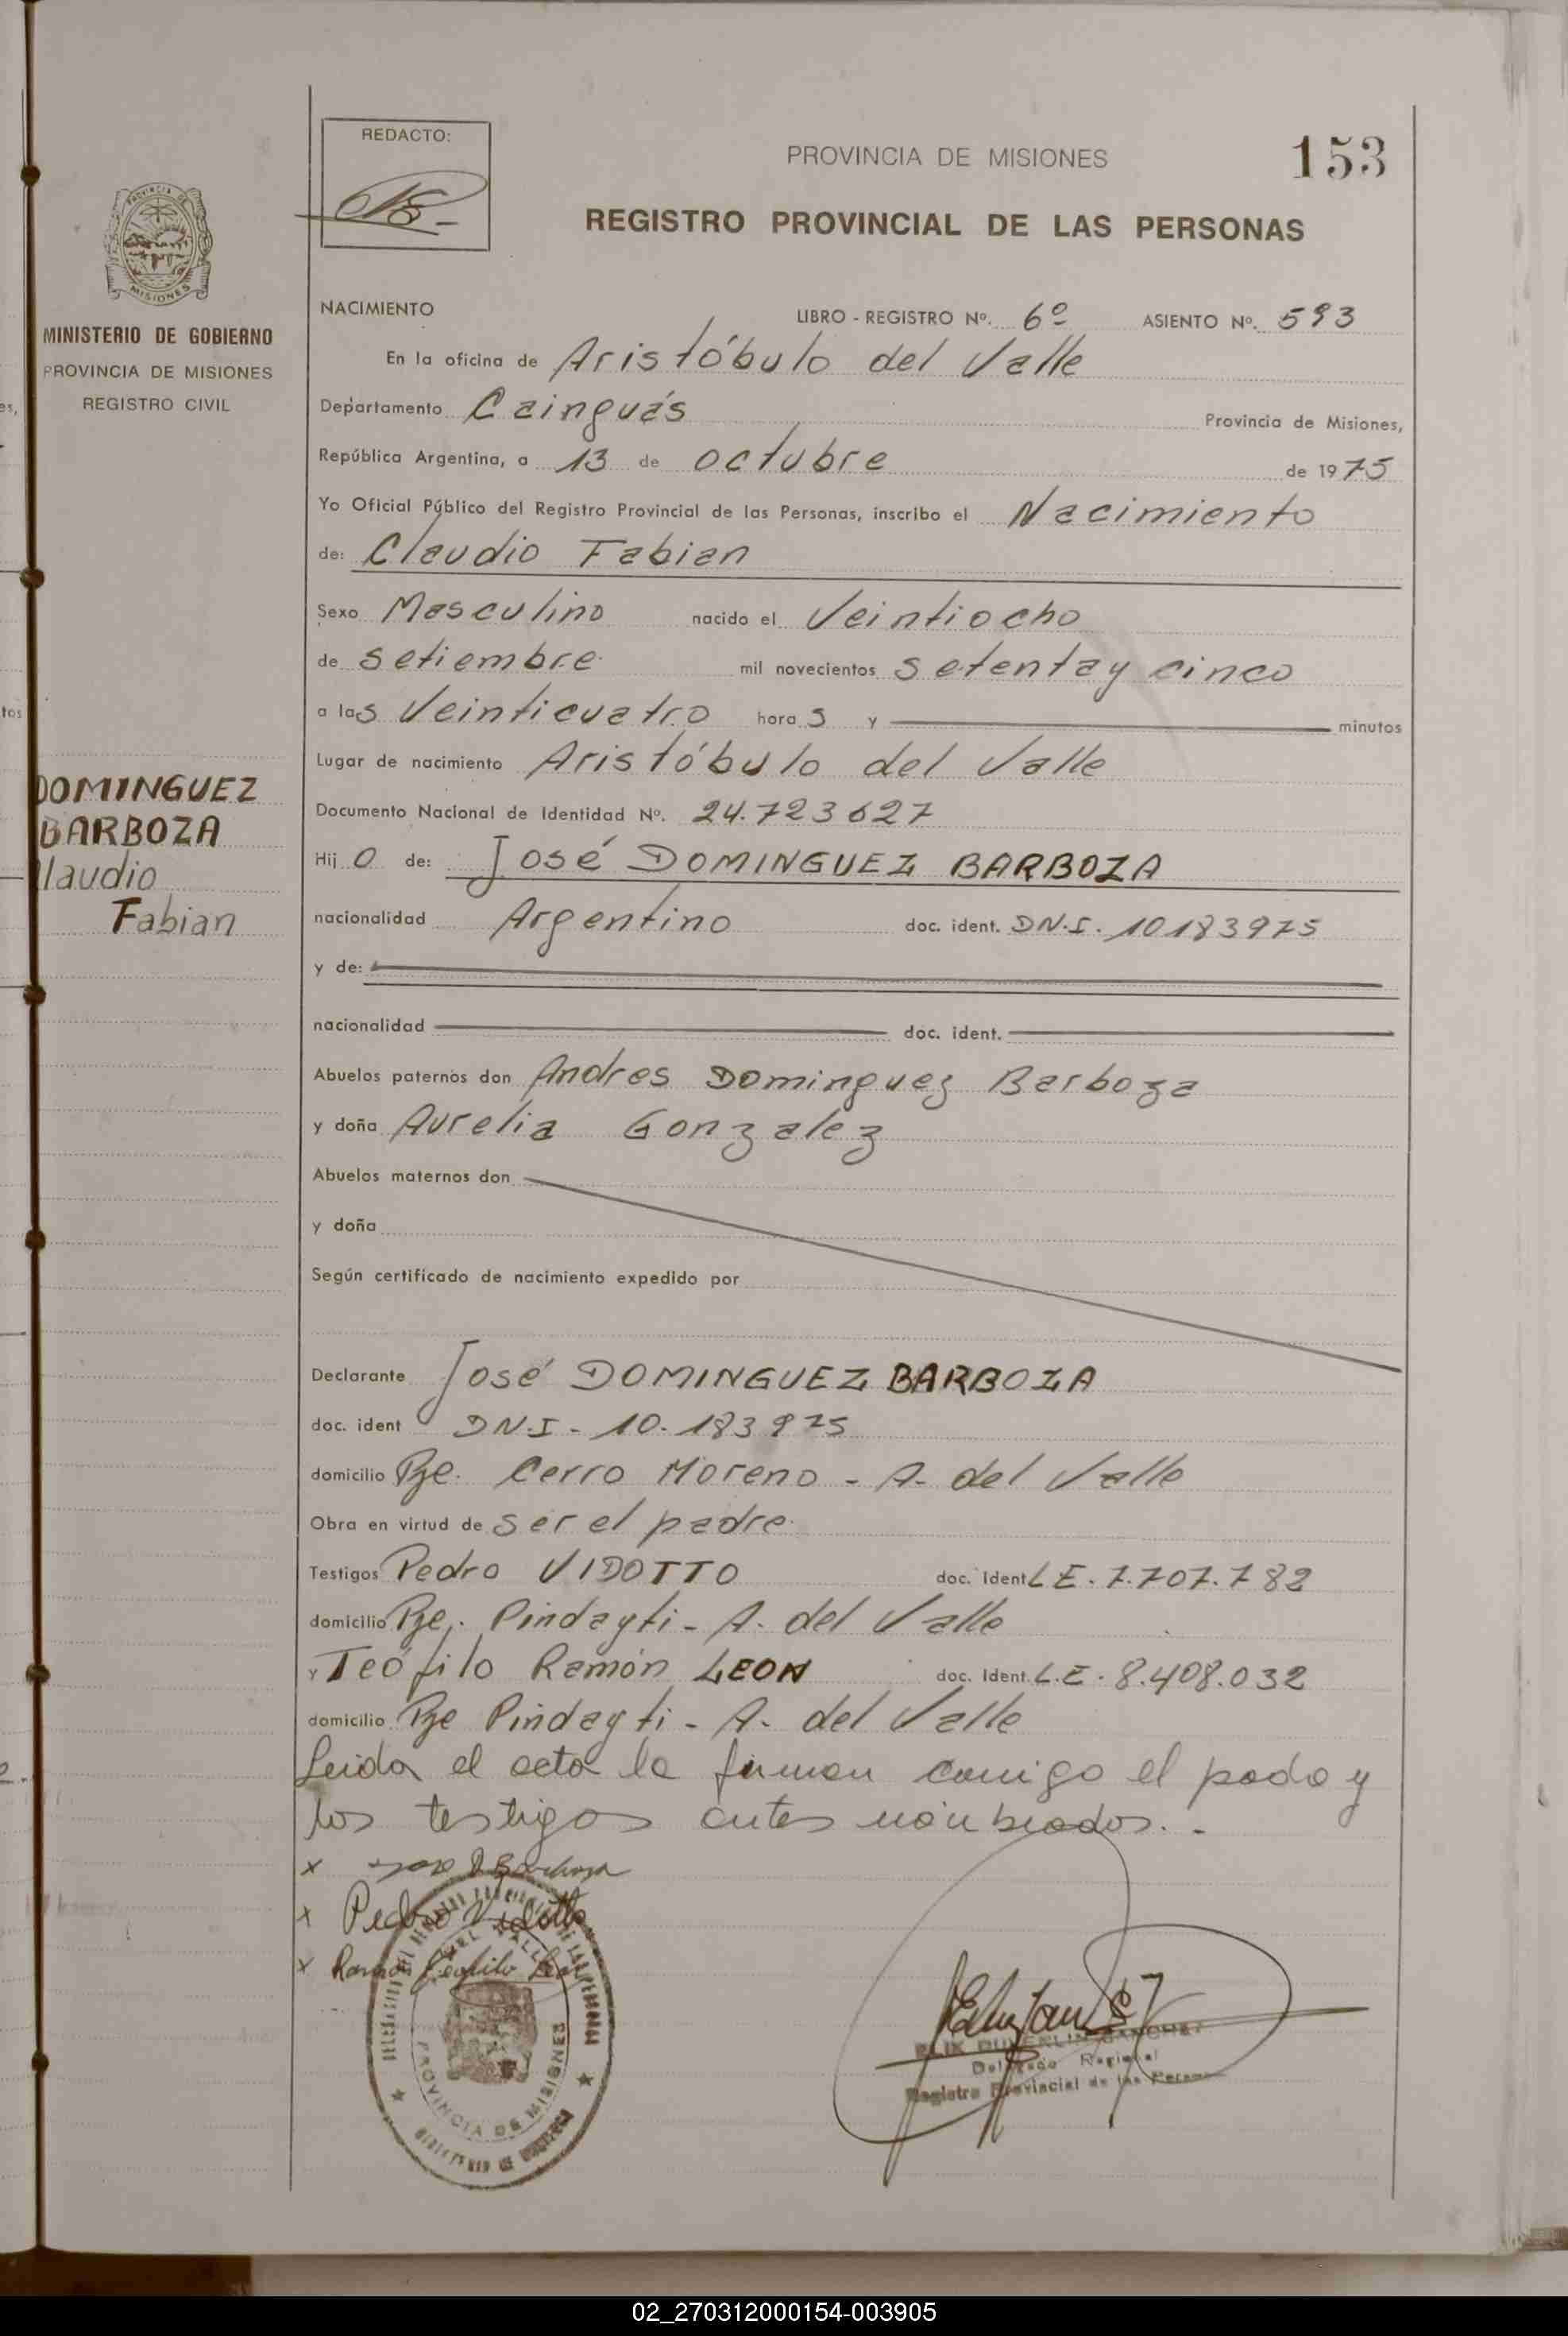 REDACTO:
PROVINCIA DE MISIONES
153
REGISTRO PROVINCIAL DE LAS PERSONAS
PROVINCIA DE
MISIONES
MINISTERIO DE GOBIERNO
PROVINCIA DE MISIONES
REGISTRO CIVIL
NACIMIENTO LIBRO - REGISTRO Nº. 6º ASIENTO Nº. 593
En la oficina de Aristóbulo del Valle
Departamento Cainguás Provincia de Misiones,
República Argentina, a 13 de octubre de 1975
Yo Oficial Público del Registro Provincial de las Personas, inscribo el Nacimiento
de: Claudio Fabian
Sexo Masculino nacido el Veintiocho
de setiembre mil novecientos setenta y cinco
a las Veinticuatro horas y minutos
Lugar de nacimiento Aristóbulo del Valle
Documento Nacional de Identidad Nº. 24.723627
Hijo de: José DOMINGUEZ BARBOZA
nacionalidad Argentino doc. ident. DN.I. 10183975
y de:
nacionalidad doc. ident.
Abuelos paternos don Andres Dominguez Barboza
y doña Aurelia Gonzalez
Abuelos maternos don
y doña
Según certificado de nacimiento expedido por
Declarante José DOMINGUEZ BARBOZA
doc. ident DN.I - 10.183975
domicilio Pje. Cerro Moreno - A. del Valle
Obra en virtud de ser el padre
Testigos Pedro VIDOTTO doc. ident LE. 7.707.782
domicilio Pje. Pindayti - A. del Valle
y Teófilo Ramón LEON doc. ident. L.E. 8.408.032
domicilio Pje Pindayti - A. del Valle
Leida el acta la firman conmigo el padre y
los testigos antes nombrados. -
x Jose D Barboza
x Pedro Vidotto
x Ramon Teofilo Leon
DOMINGUEZ
BARBOZA
Claudio
Fabian
PROVINCIA DE MISIONES
SANCHEZ
Delegado Regional
Registro Provincial de las Personas
02_270312000154-003905